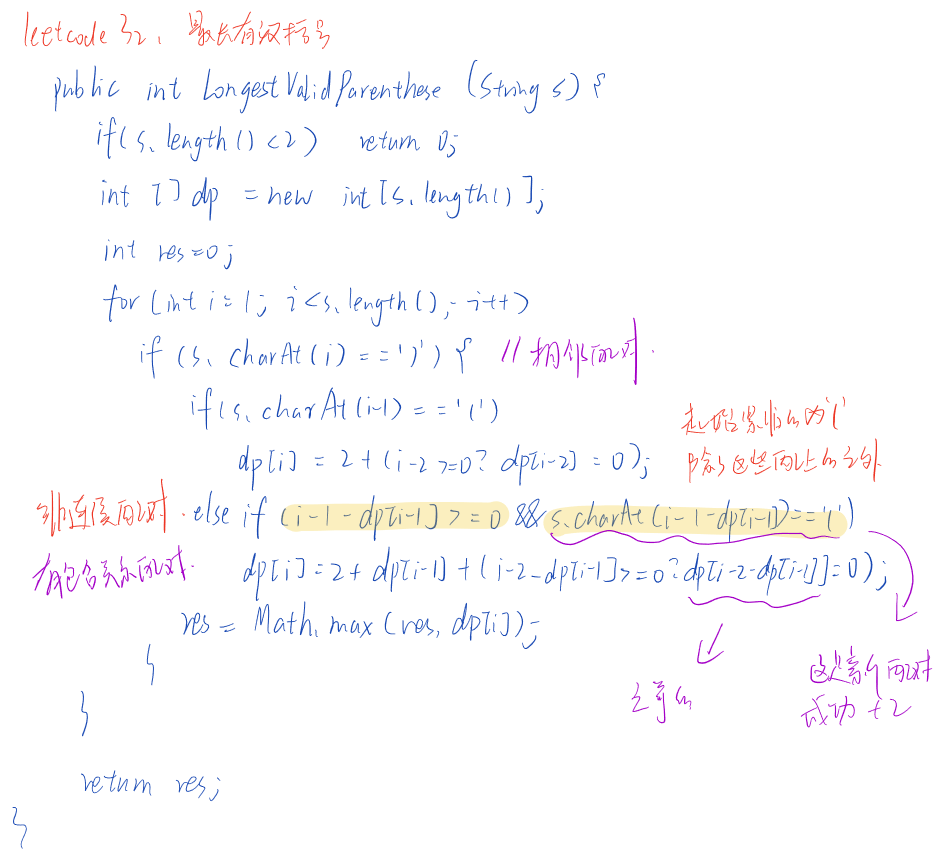 leetcode 32、最长有效括号
public int LongestValidParenthese (String s) {
if(s.length()<2) return 0;
int []dp = new int[s.length()];
int res=0;
for(int i=1; i<s.length(); i++)
if (s.charAt(i)==')') { //相邻配对.
if(s.charAt(i-1)=='('
dp[i] = 2+(i-2>=0? dp[i-2]=0);
除了这些配对的之外.
非连续配对. else if (i-1-dp[i-1]>=0 && s.charAt(i-1-dp[i-1])=='(')
有包含关系配对. dp[i]=2+dp[i-1]+(i-2-dp[i-1]>=0?dp[i-2-dp[i-1]]=0);
res = Math.max(res, dp[i]);
}
之前的
这是新的配对
成功+2
}
return res;
}